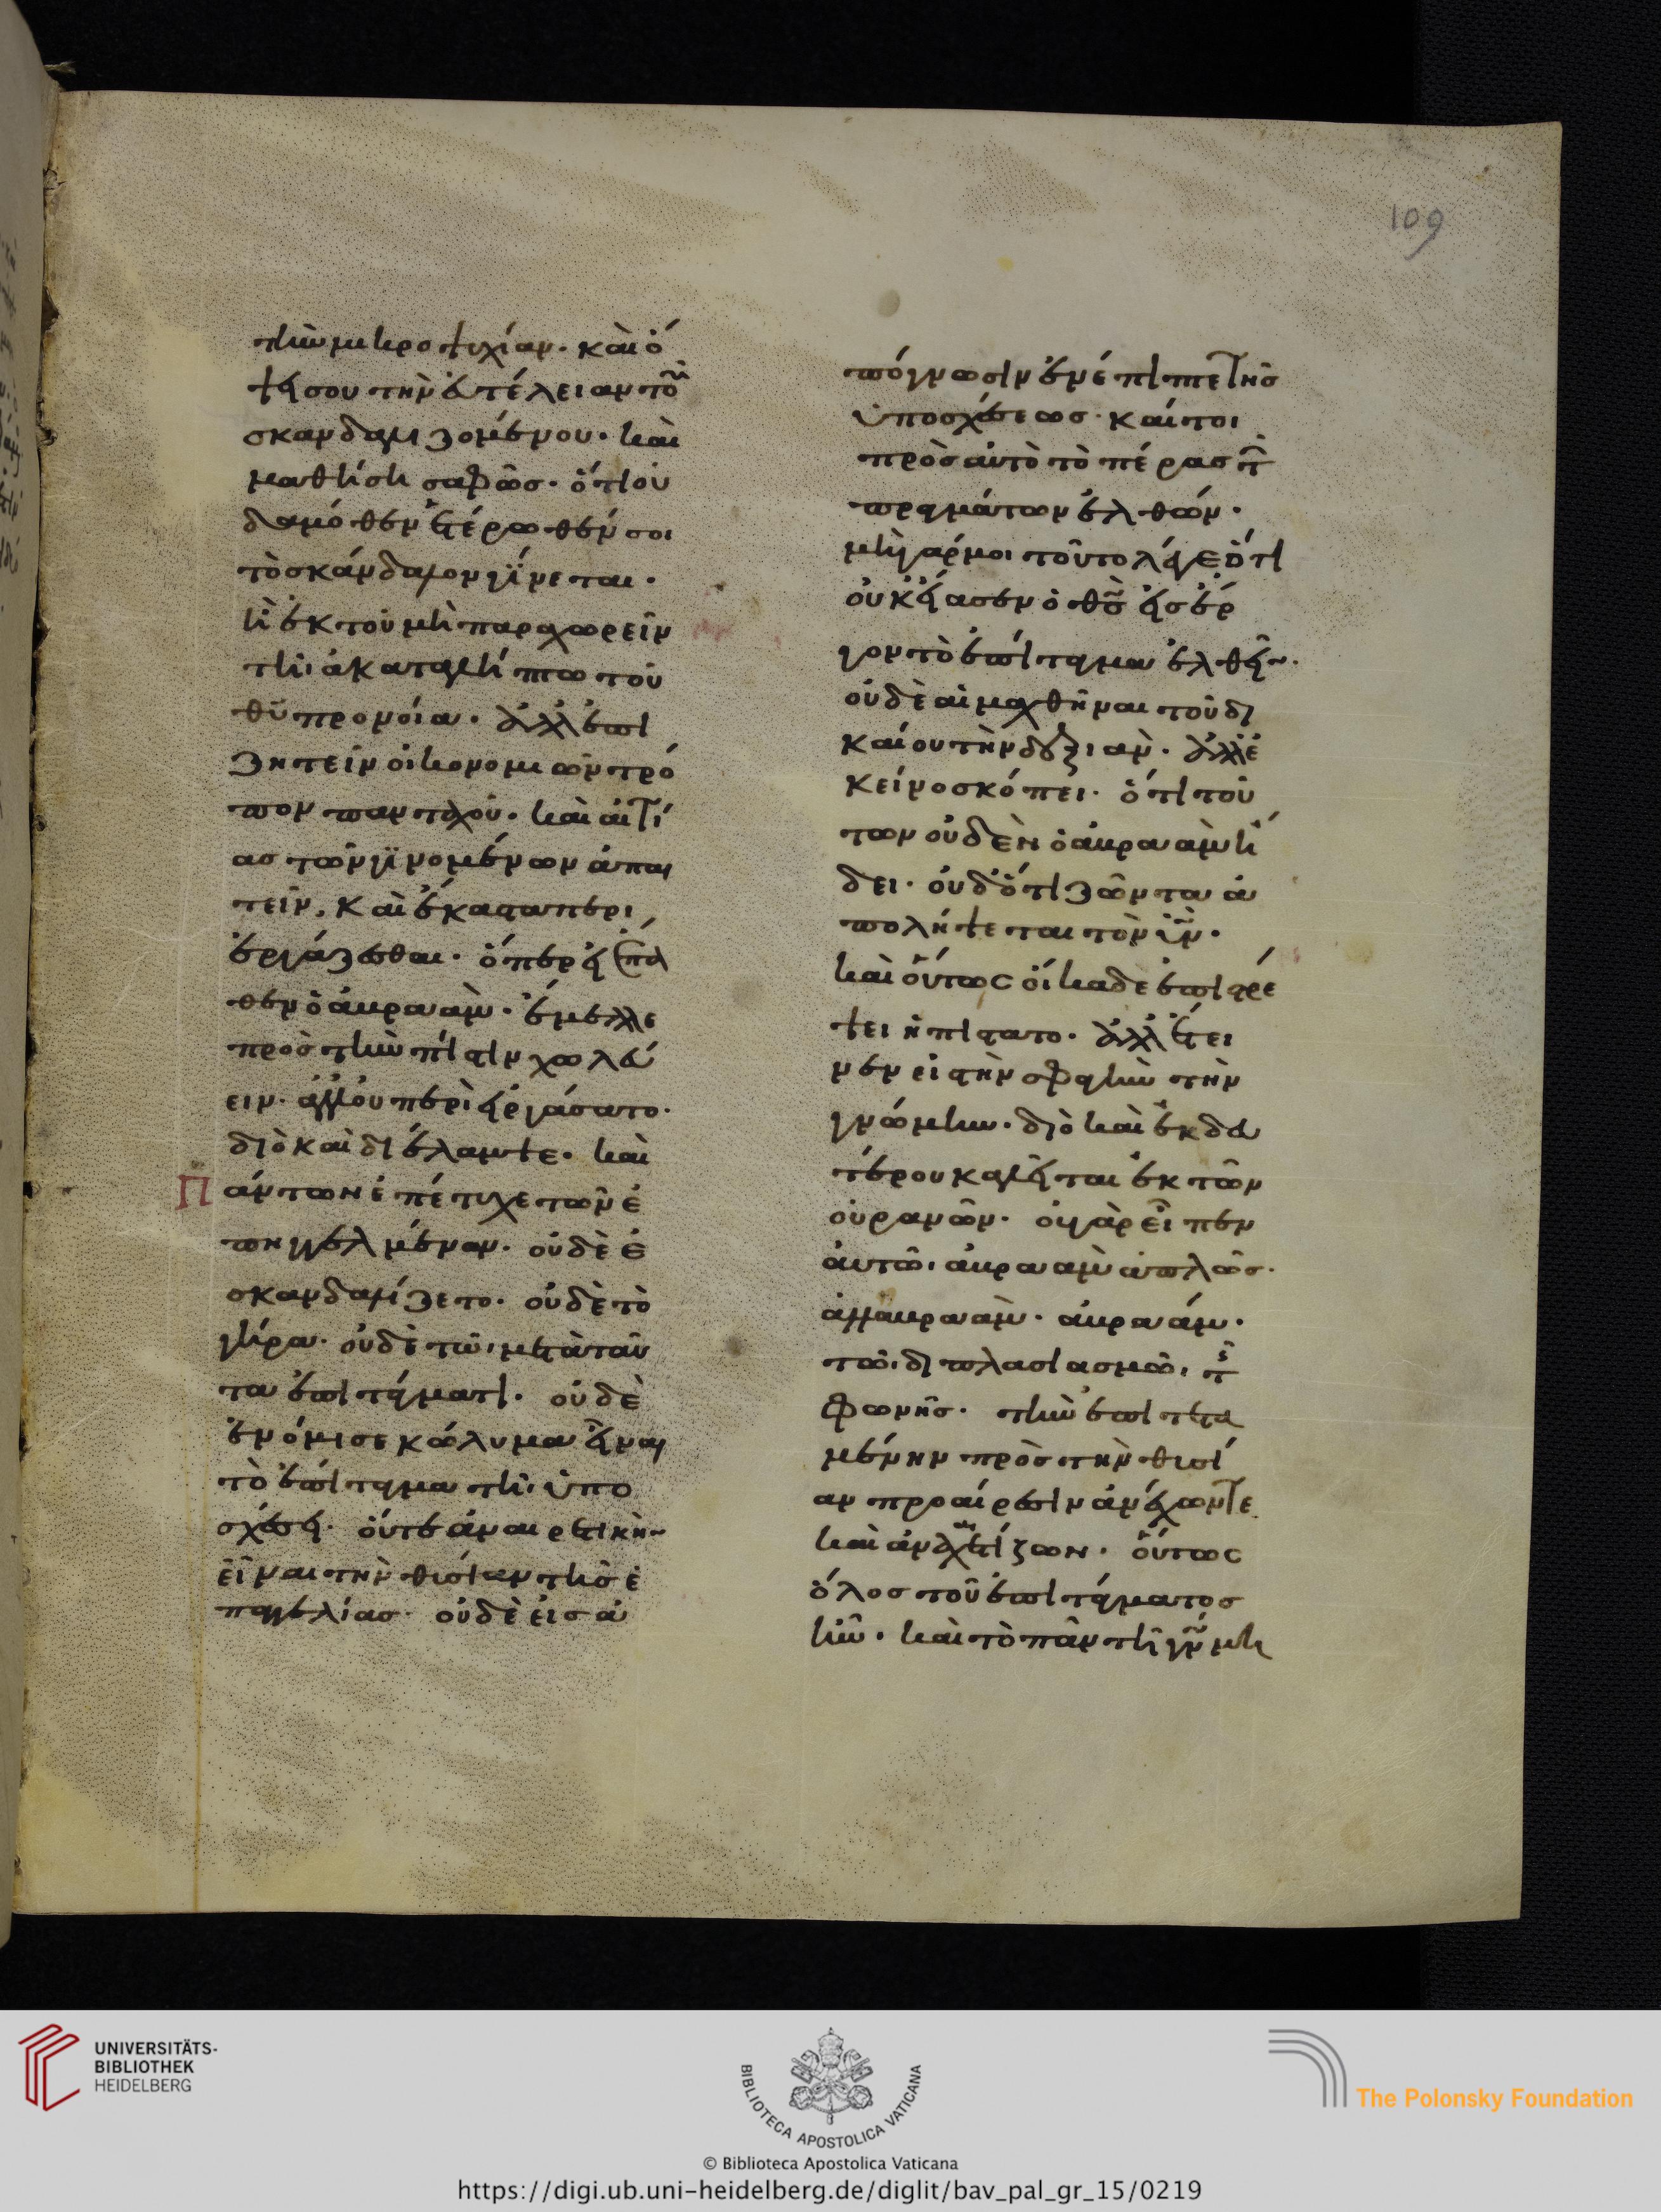 109
τὴν μικροψυχίαν· καὶ ὄ
ψει σου τὴν εὐτέλειαν τοῦ
σκανδαλιζομένου· καὶ
μαθήσῃ σαφῶς· ὅτι οὐ
δαμόθεν ἑτέρωθέν σοι
τὸ σκάνδαλον γίνεται·
ἢ ἐκ τοῦ μὴ παραχωρεῖν
τῆι ἀκαταλήπτω τοῦ
θῦ προνοία· ἀλλ' ἐπι
ζητεῖν οἰκονομιῶν τρό
πον πανταχοῦ· καὶ αἰτί
ας τῶν γϊνομένων ἀπαι
τεῖν. καὶ ἕκαστα περι
εργάζεσθαι· ὅπερ εἰ ἔπα
θεν ὁ ἀβραὰμ· ἔμελλε
πρὸς τὴν πίστιν χωλεύ
ειν· ἀλλ' οὐ περιειργάσατο·
διὸ καὶ διέλαμψε· καὶ
Πάντων ἐπέτυχε τῶν ἐ
πηγγελμένων· οὐδὲ ἐ
σκανδαλίζετο· οὐδὲ τὸ
γῆρα· οὐδὲ τῶι μετὰ ταῦ
τα ἐπιτάγματι· οὐδὲ
ἐνόμισε κώλυμα εἶναι
τὸ ἐπίταγμα τῆι ὑπο
σχέσει· οὔτε ἀναιρετικὴν
εἶναι τὴν θυσίαν τῆς ἐ
παγγελίας· οὐδὲ εἰς ἀ
πόγνωσιν ἐνέπιπτε τῆς
ὑποσχέσεως· καίτοι
πρὸς αὐτὸ τὸ πέρας τῶν
πραγμάτων ἐλθών·
μὴ γάρ μοι τοῦτο λέγε ὅτι
οὐκ εἴασεν ὁ θς εἰς ἔρ
γον τὸ ἐπίταγμα ἐλθεῖν·
οὐδὲ αἱμαχθῆναι τοῦ δι
καίου τὴν δεξιὰν· ἀλλ' ἐ
κεῖνο σκόπει· ὅτι τού
των οὐδὲν ὁ ἀβραὰμ ἤ
δει· οὐδ' ὅτι ζῶντα ἀ
πολήψεται τὸν υν·
καὶ οὕτως οἴκαδε ἐπιστρέ
ψει ἠπίστατο· ἀλλ' ἔτει
νεν εἰς τὴν σφαγὴν τὴν
γνώμην· διὸ καὶ ἐκ δευ
τέρου καλεῖται ἐκ τῶν
οὐρανῶν· οὐ γὰρ εἶπεν
αὐτῶι ἀβραὰμ ἁπλῶς·
ἀλλ' ἀβραὰμ· ἀβραάμ·
τῶι διπλασιασμῶι τῆς
φωνῆς· τὴν ἐπιτετα
μένην πρὸς τὴν θυσί
αν προαίρεσιν ἀνέχων τε
καὶ ἀναχαιτίζων· οὕτως
ὅλος τοῦ ἐπιτάγματος
ἦν· καὶ τὸ πᾶν τῆι γνώμη
UNIVERSITÄTS-
BIBLIOTHEK
HEIDELBERG
BIBLIOTECA APOSTOLICA VATICANA
The Polonsky Foundation
© Biblioteca Apostolica Vaticana
https://digi.ub.uni-heidelberg.de/diglit/bav_pal_gr_15/0219